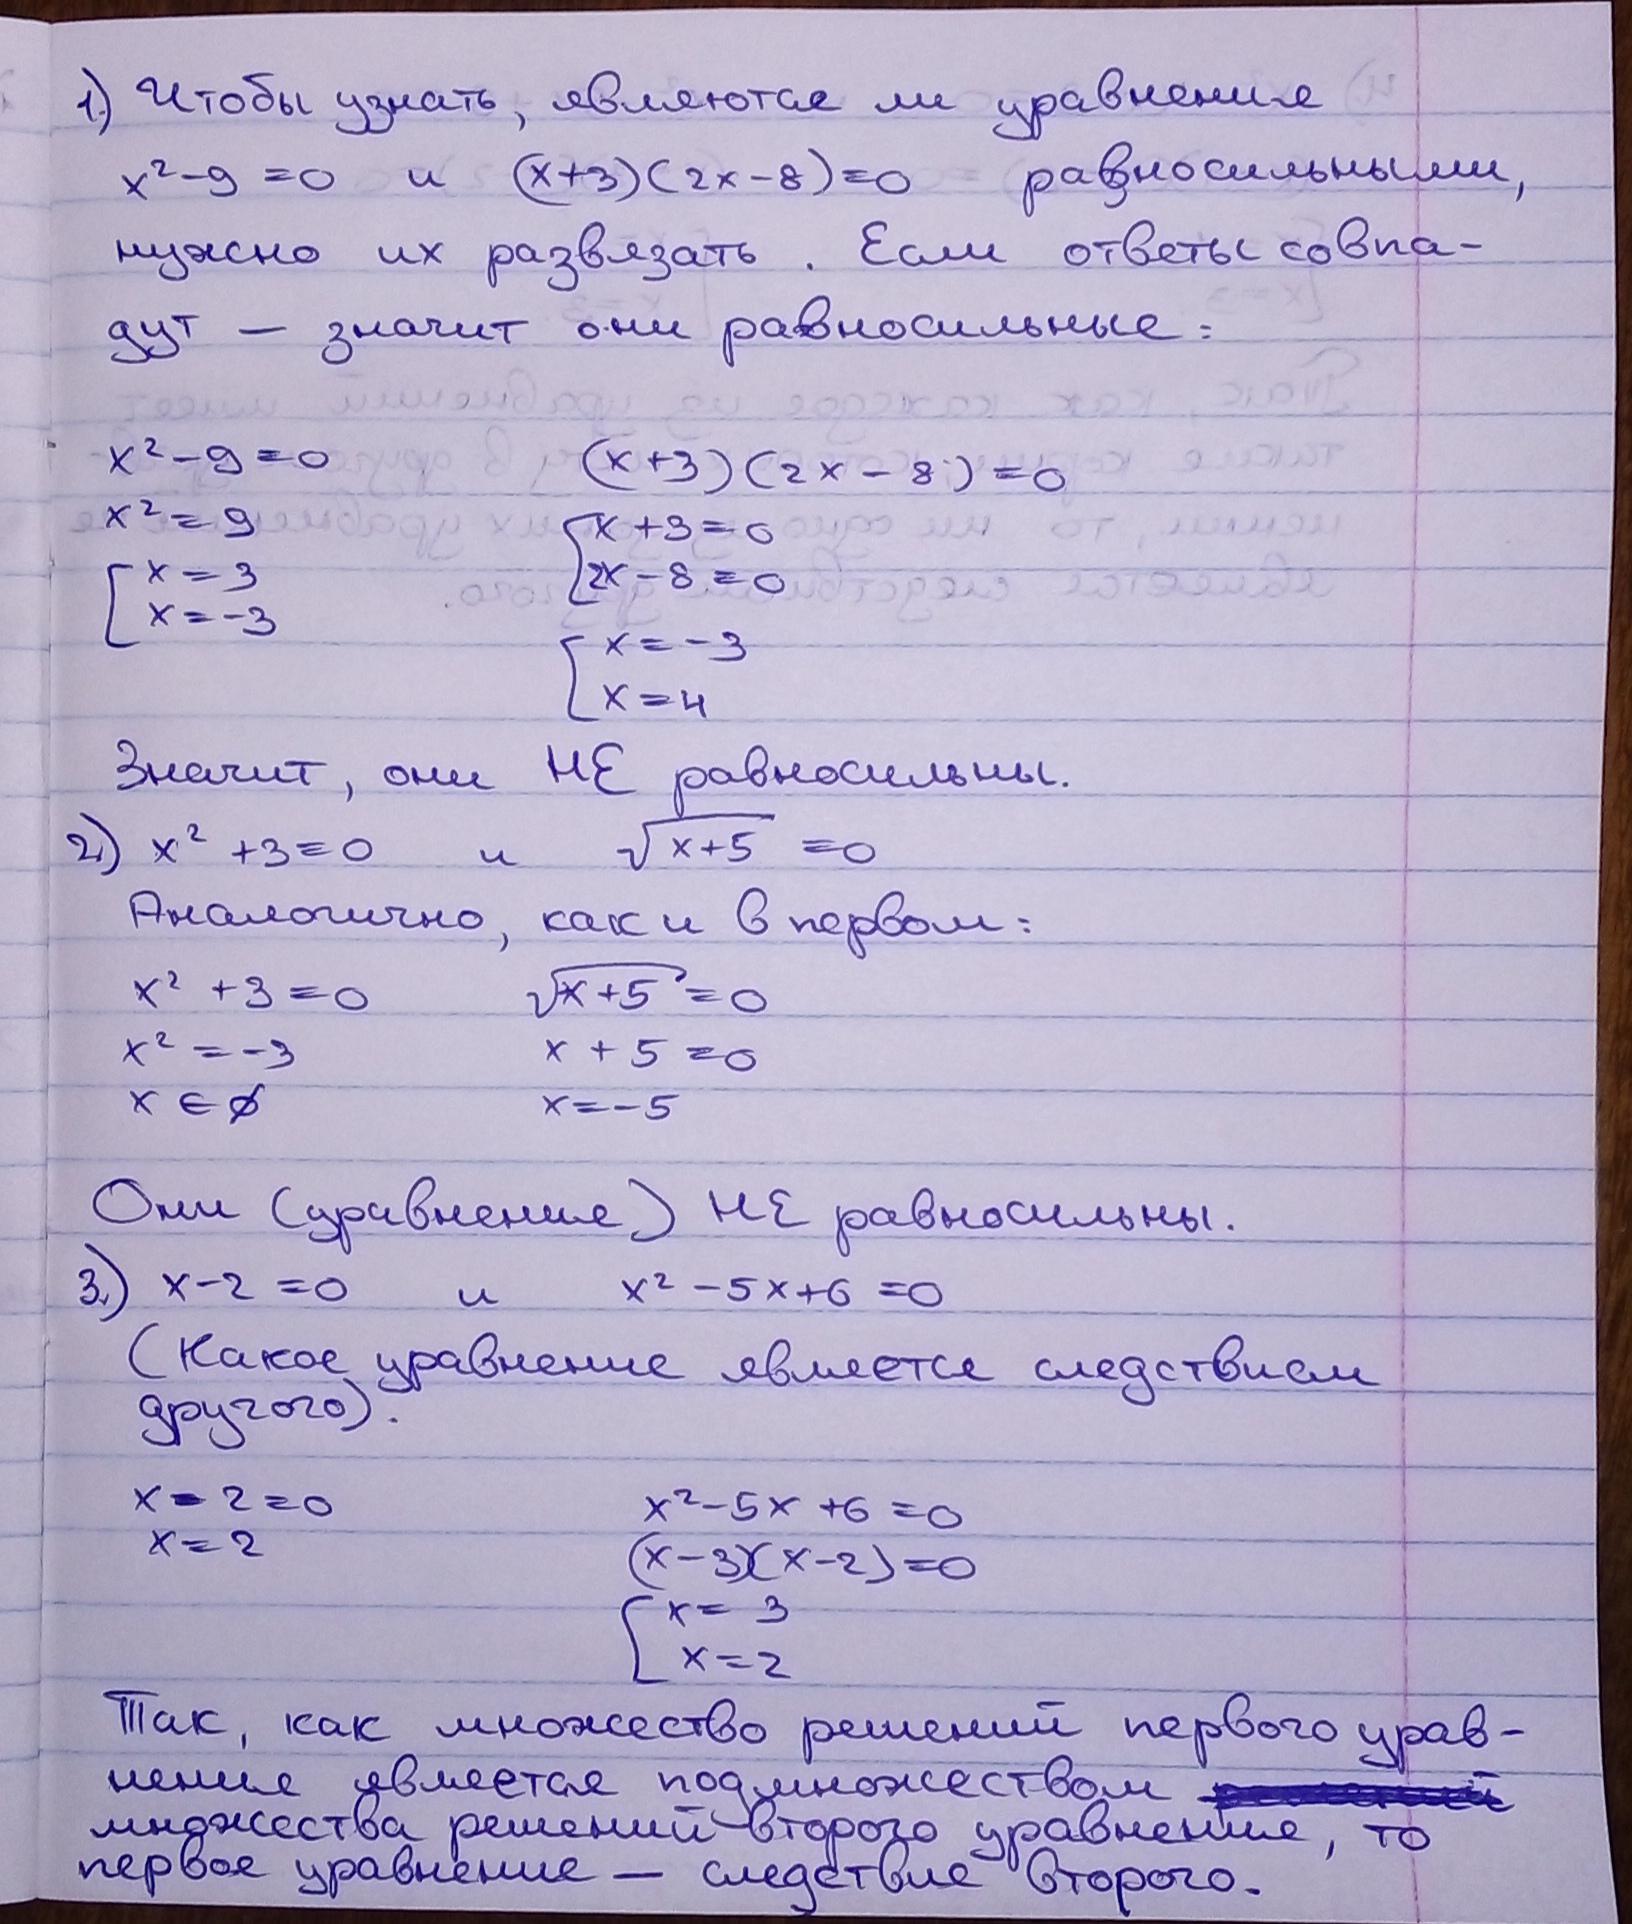 1.) Чтобы узнать, являются ли уравнения
x²-9=0 и (x+3)(2x-8)=0 равносильными,
нужно их развязать. Если ответы совпа-
дут — значит они равносильные:
x²-9=0 (x+3)(2x-8)=0
x²=9 [x+3=0
[x=3 2x-8=0
x=-3 [x=-3
x=4
Значит, они НЕ равносильны.
2.) x²+3=0 и √x+5 =0
Аналогично, как и в первом:
x²+3=0 √x+5=0
x²=-3 x+5=0
x∈∅ x=-5
Они (уравнения) НЕ равносильны.
3.) x-2=0 и x²-5x+6=0
(Какое уравнение является следствием
другого).
x-2=0 x²-5x+6=0
x=2 (x-3)(x-2)=0
[x=3
x=2
Так, как множество решений первого урав-
нения является подмножеством
множества решений второго уравнения, то
первое уравнение — следствие второго.